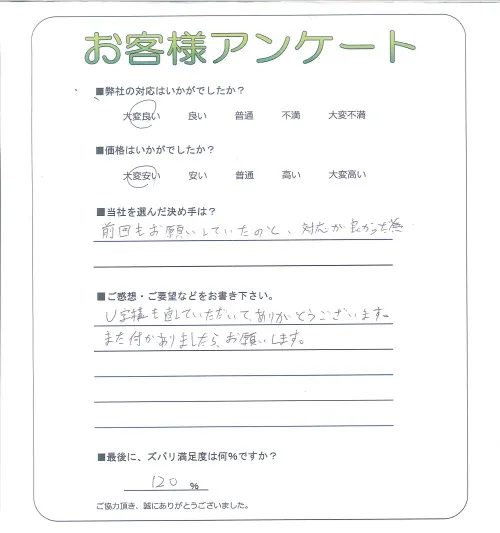 お客様アンケート
■弊社の対応はいかがでしたか？
大変良い 良い 普通 不満 大変不満
■価格はいかがでしたか？
大変安い 安い 普通 高い 大変高い
■当社を選んだ決め手は？
前回もお願いしていたのと、対応が良かった為
■ご感想・ご要望などをお書き下さい。
U字構も直していただいて、ありがとうございます。
また付かありましたら、お願いします。
■最後に、ズバリ満足度は何%ですか？
120 %
ご協力頂き、誠にありがとうございました。